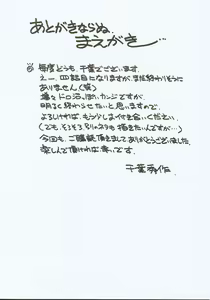 あとがきならぬ、
まえがき…
◎ 毎度どうも、千葉でございます。
えー、四話目になりますが、まだ終わりそうに
ありません(笑)
痛々ドロ沼っぽいカンジですが、
明るく終わらせたいと思いますので、
よろしければ、もう少しおつき合いください。
(でも、そろそろ別のネタも描きたいんですが…)
今回も、ご購読頂きましてありがとうございました。
楽しんで頂ければ幸いです。
千葉秀作